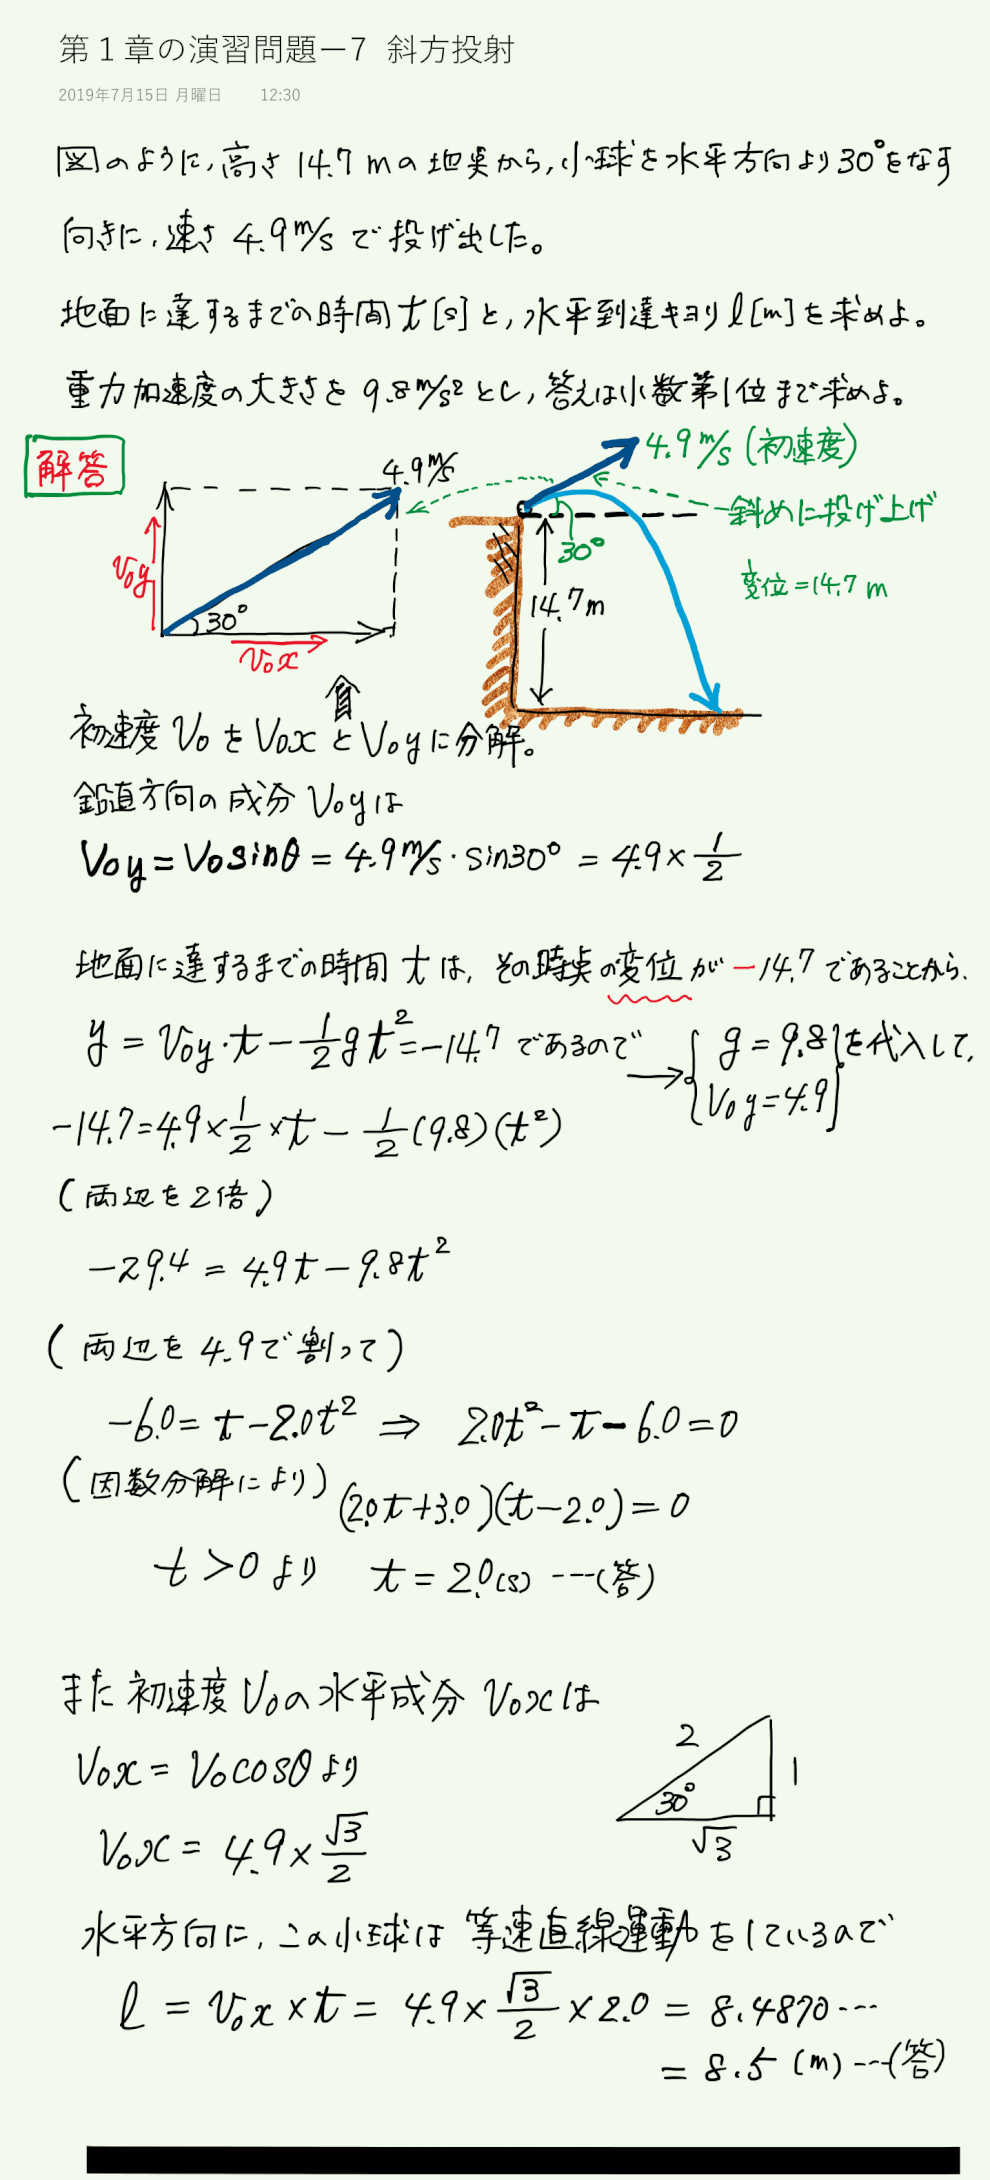 第1章の演習問題ー7 斜方投射
2019年7月15日 月曜日 12:30
図のように,高さ14.7mの地点から,小球を水平方向より30°をなす
向きに,速さ4.9m/sで投げ出した。
地面に達するまでの時間t[s]と,水平到達キョリl[m]を求めよ。
重力加速度の大きさを9.8m/s²とし,答えは小数第1位まで求めよ。
解答
4.9m/s
V₀y
30°
V₀x
4.9m/s(初速度)
斜めに投げ上げ
30°
変位=14.7m
14.7m
初速度V₀をV₀xとV₀yに分解。
鉛直方向の成分V₀yは
V₀y=V₀sinθ=4.9m/s・sin30°=4.9×1/2
地面に達するまでの時間tは,その時点の変位が-14.7であることから、
y=V₀y・t-1/2gt²=-14.7であるので
→{g=9.8 V₀y=4.9}を代入して,
-14.7=4.9×1/2×t-1/2(9.8)(t²)
(両辺を2倍)
-29.4=4.9t-9.8t²
(両辺を4.9で割って)
-6.0=t-2.0t² ⇒ 2.0t²-t-6.0=0
(因数分解により) (2.0t+3.0)(t-2.0)=0
t>0より t=2.0(s)---(答)
また初速度V₀の水平成分V₀xは
V₀x=V₀cosθより
V₀x=4.9×√3/2
2
1
30°
√3
水平方向に,この小球は等速直線運動をしているので
l=V₀x×t=4.9×√3/2×2.0=8.4870…
=8.5(m)---(答)